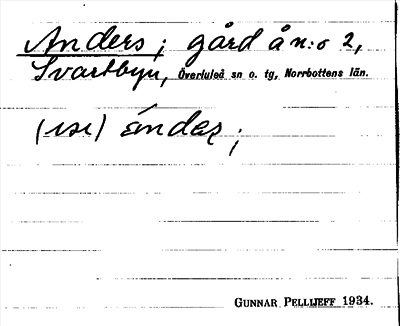 Anders; gård å n:o 2,
Svartbyn, Överluleå sn o. tg, Norrbottens län.
(ɪsɪ) ándəʂ;
GUNNAR PELLIJEFF 1934.